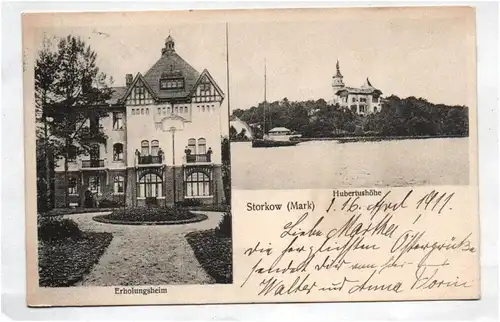 Hubertushöhe
Storkow (Mark)
16. April 1911.
Liebe Martha
die herzlichsten Ostergrüße
sendet dir
Walter und Anna
Erholungsheim